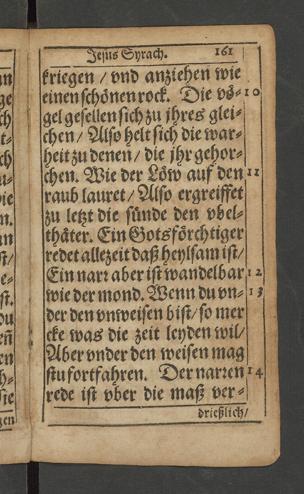 Jesus Syrach. 161
kriegen / vnd anziehen wie
einen schönen rock. Die vö- 10
gel gesellen sich zu jhres glei-
chen / Also helt sich die war-
heit zu denen / die jhr gehor-
chen. Wie der Löw auf den 11
raub lauret / Also ergreiffet
zu letzt die sünde den vbel-
thäter. Ein Gotsförchtiger
redet allezeit daß heylsam ist /
Ein narr aber ist wandelbar 12
wie der mond. Wenn du vn- 13
der den vnweisen bist / so mer
cke was die zeit leyden wil /
Aber vnder den weisen mag
stu fortfahren. Der narren 14
rede ist vber die maß ver-
drießlich /